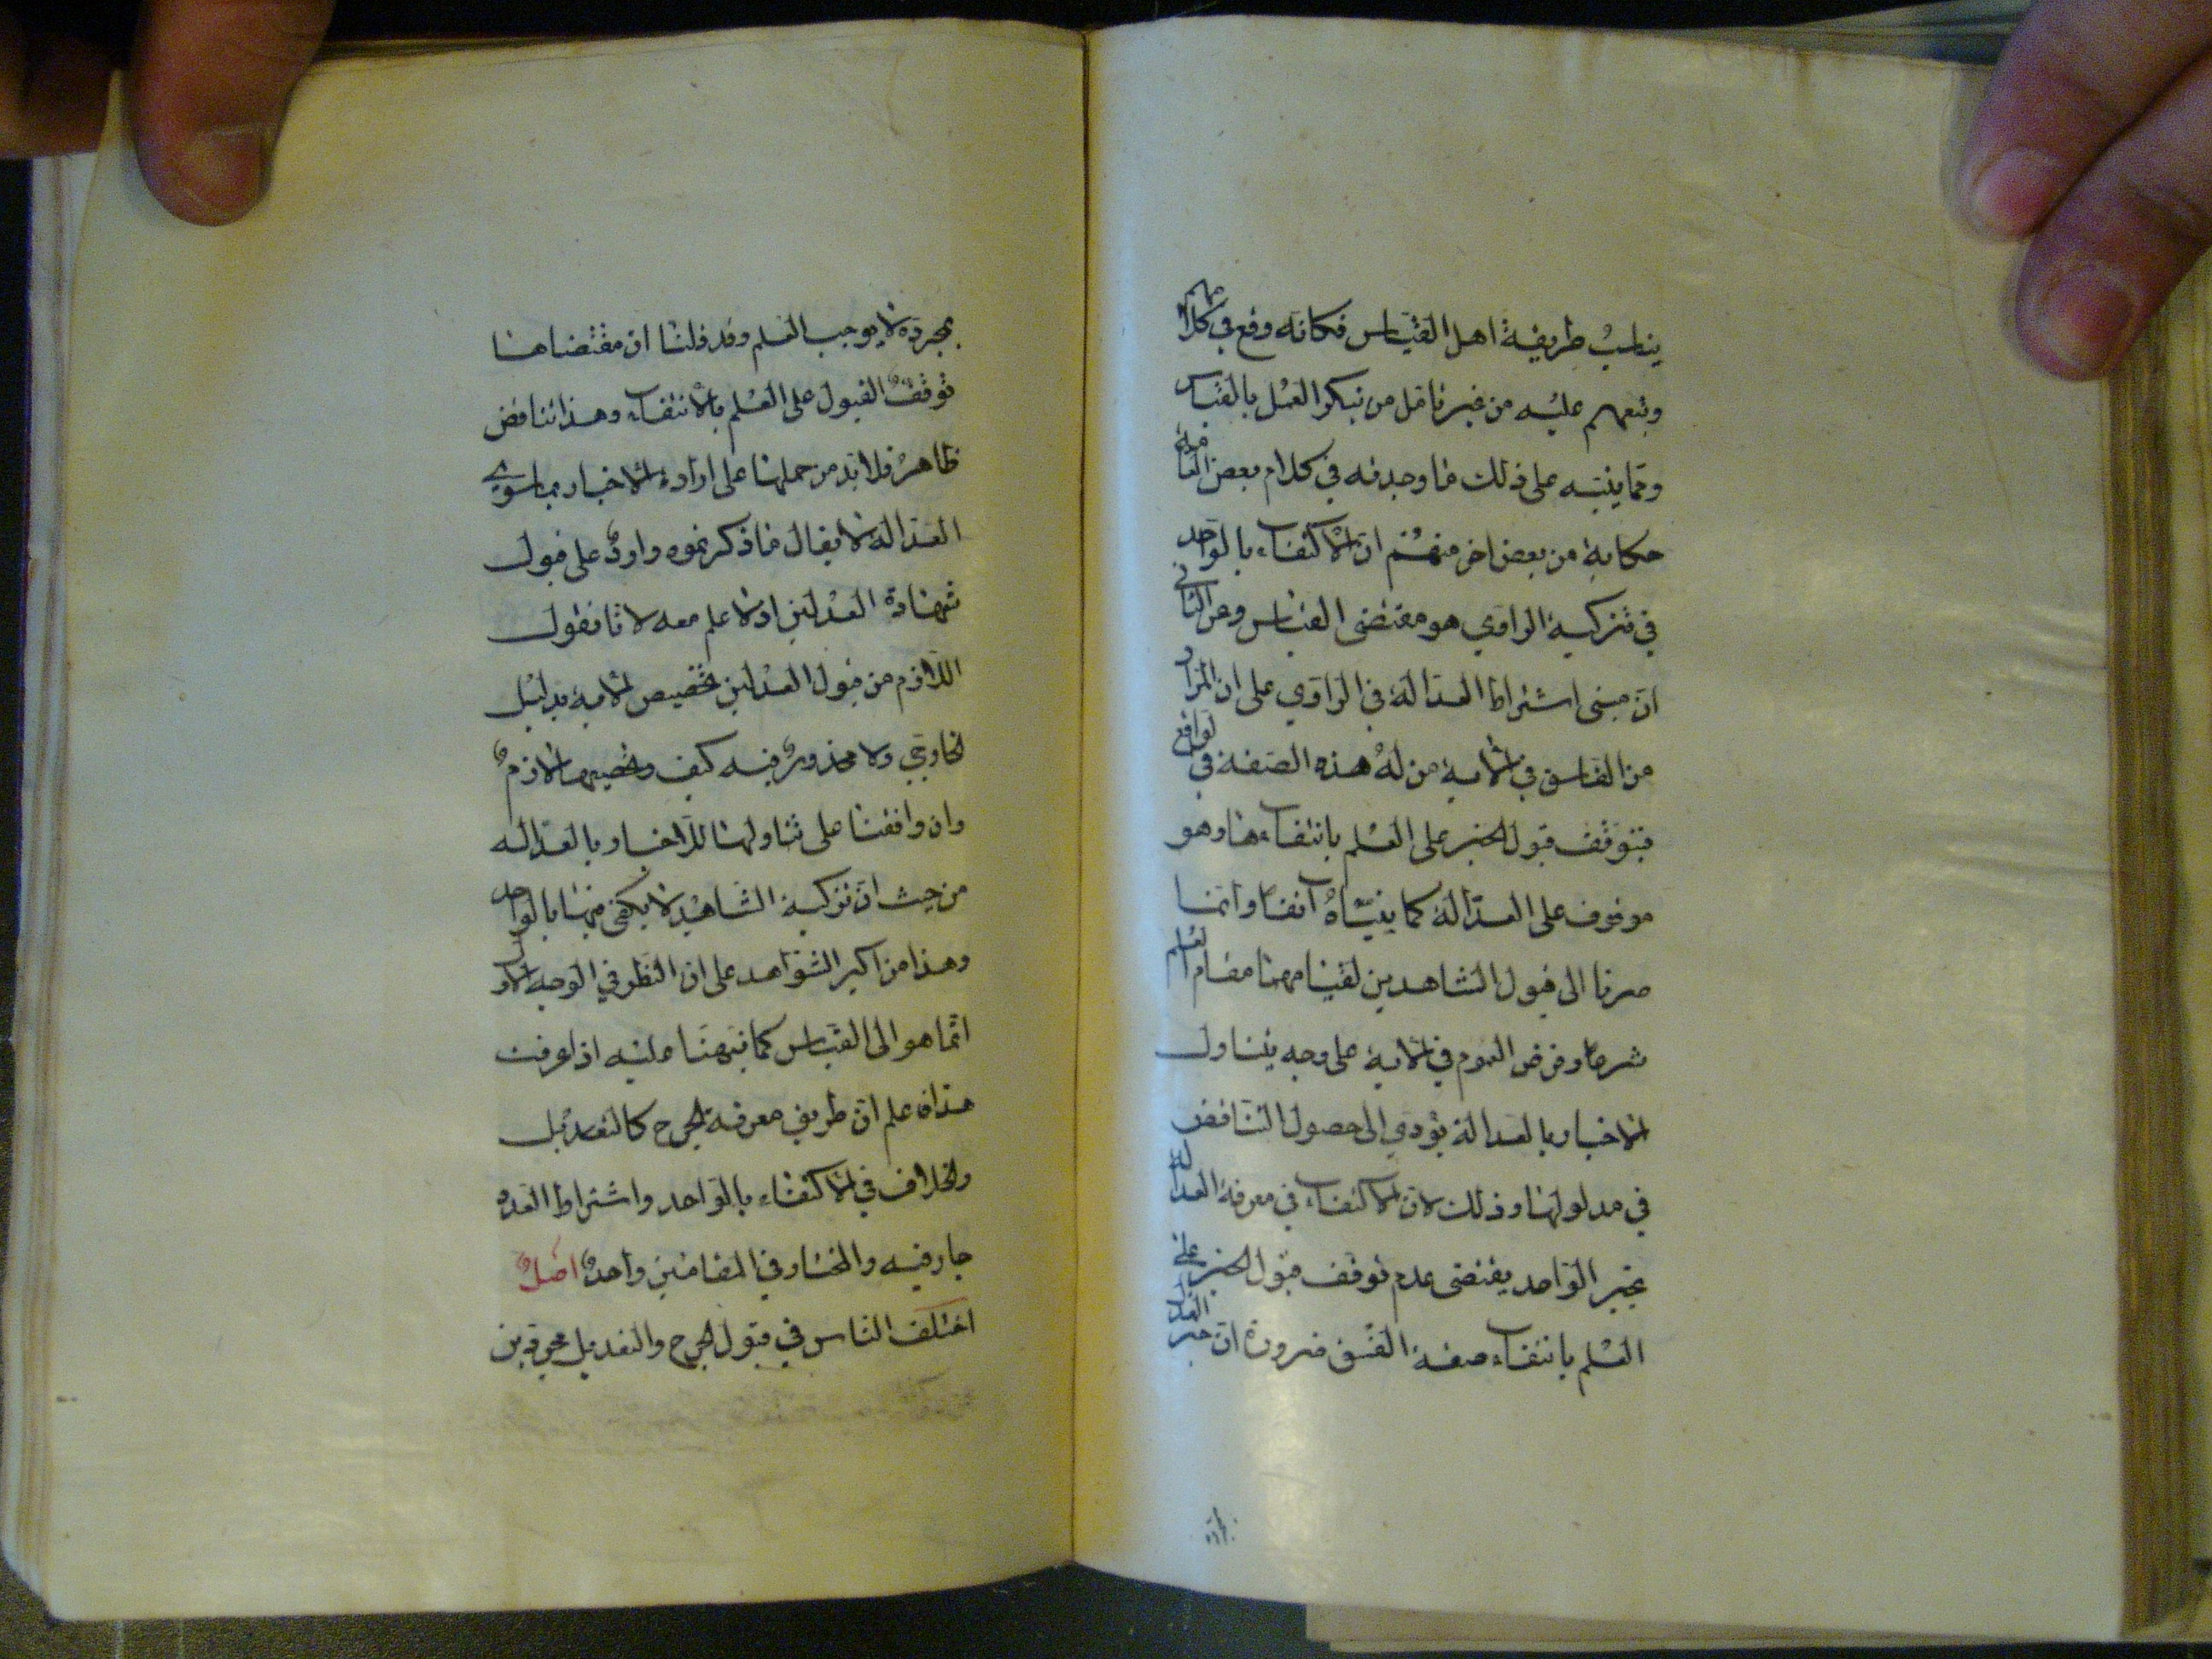 يناسب طريقة اهل القياس فكانه وقع في كلامهم
وتبعهم عليه من غير تامل من ينكر العمل بالقياس
ومما ينبه على ذلك ما وجدته في كلام بعض العامة
حكاية من بعض اخر منهم ان الاكتفاء بالواحد
في تزكية الراوي هو مقتضى القياس وعن الثاني
ان مبنى اشتراط العدالة في الراوي على ان المراد
من الفاسق في الاية من له هذه الصفة في لواقع
فيتوقف قبول الخبر على العلم بانتفاءها وهو
موقوف على العدالة كما بيناه آنفا وانما
صرنا الى قبول الشاهدين لقيامهما مقام العلم
شرعا وفرض العموم في الاية على وجه يتناول
الاخبار بالعدالة يؤدي الى حصول التناقض
في مدلولها وذلك لان الاكتفاء في معرفة العدالة
بخبر الواحد يقتضى عدم توقف قبول الخبر على
العلم بانتفاء صفة الفسق ضرورة ان خبر العدل
بمجرده
بمجرده لا يوجب العلم وقد قلنا ان مقتضاها
توقف القبول على العلم بالانتفاء وهذا تناقض
ظاهر فلابد من حملها على ارادة الاخبار بما سوى
العدالة لا يقال ما ذكرتموه وارد على قبول
شهادة العدلين اذ لا علم معه لانا نقول
اللازم من قبول العدلين تخصيص الاية بدليل
خارجي ولا محذور فيه كيف وتخصيصها لازم
وان وافقنا على تناولها للاخبار بالعدالة
من حيث ان تزكية الشاهد لا يكفى فيها بالواحد
وهذا من اكبر الشواهد على ان النظر في الوجه الاول
انما هو الى القياس كما نبهنا عليه اذا عرفت
هذا فاعلم ان طريق معرفة الجرح كالتعديل
والخلاف في الاكتفاء بالواحد واشتراط التعدد
جار فيه والمختار في المقامين واحد اصل
اختلف الناس في قبول الجرح والتعديل مجردين